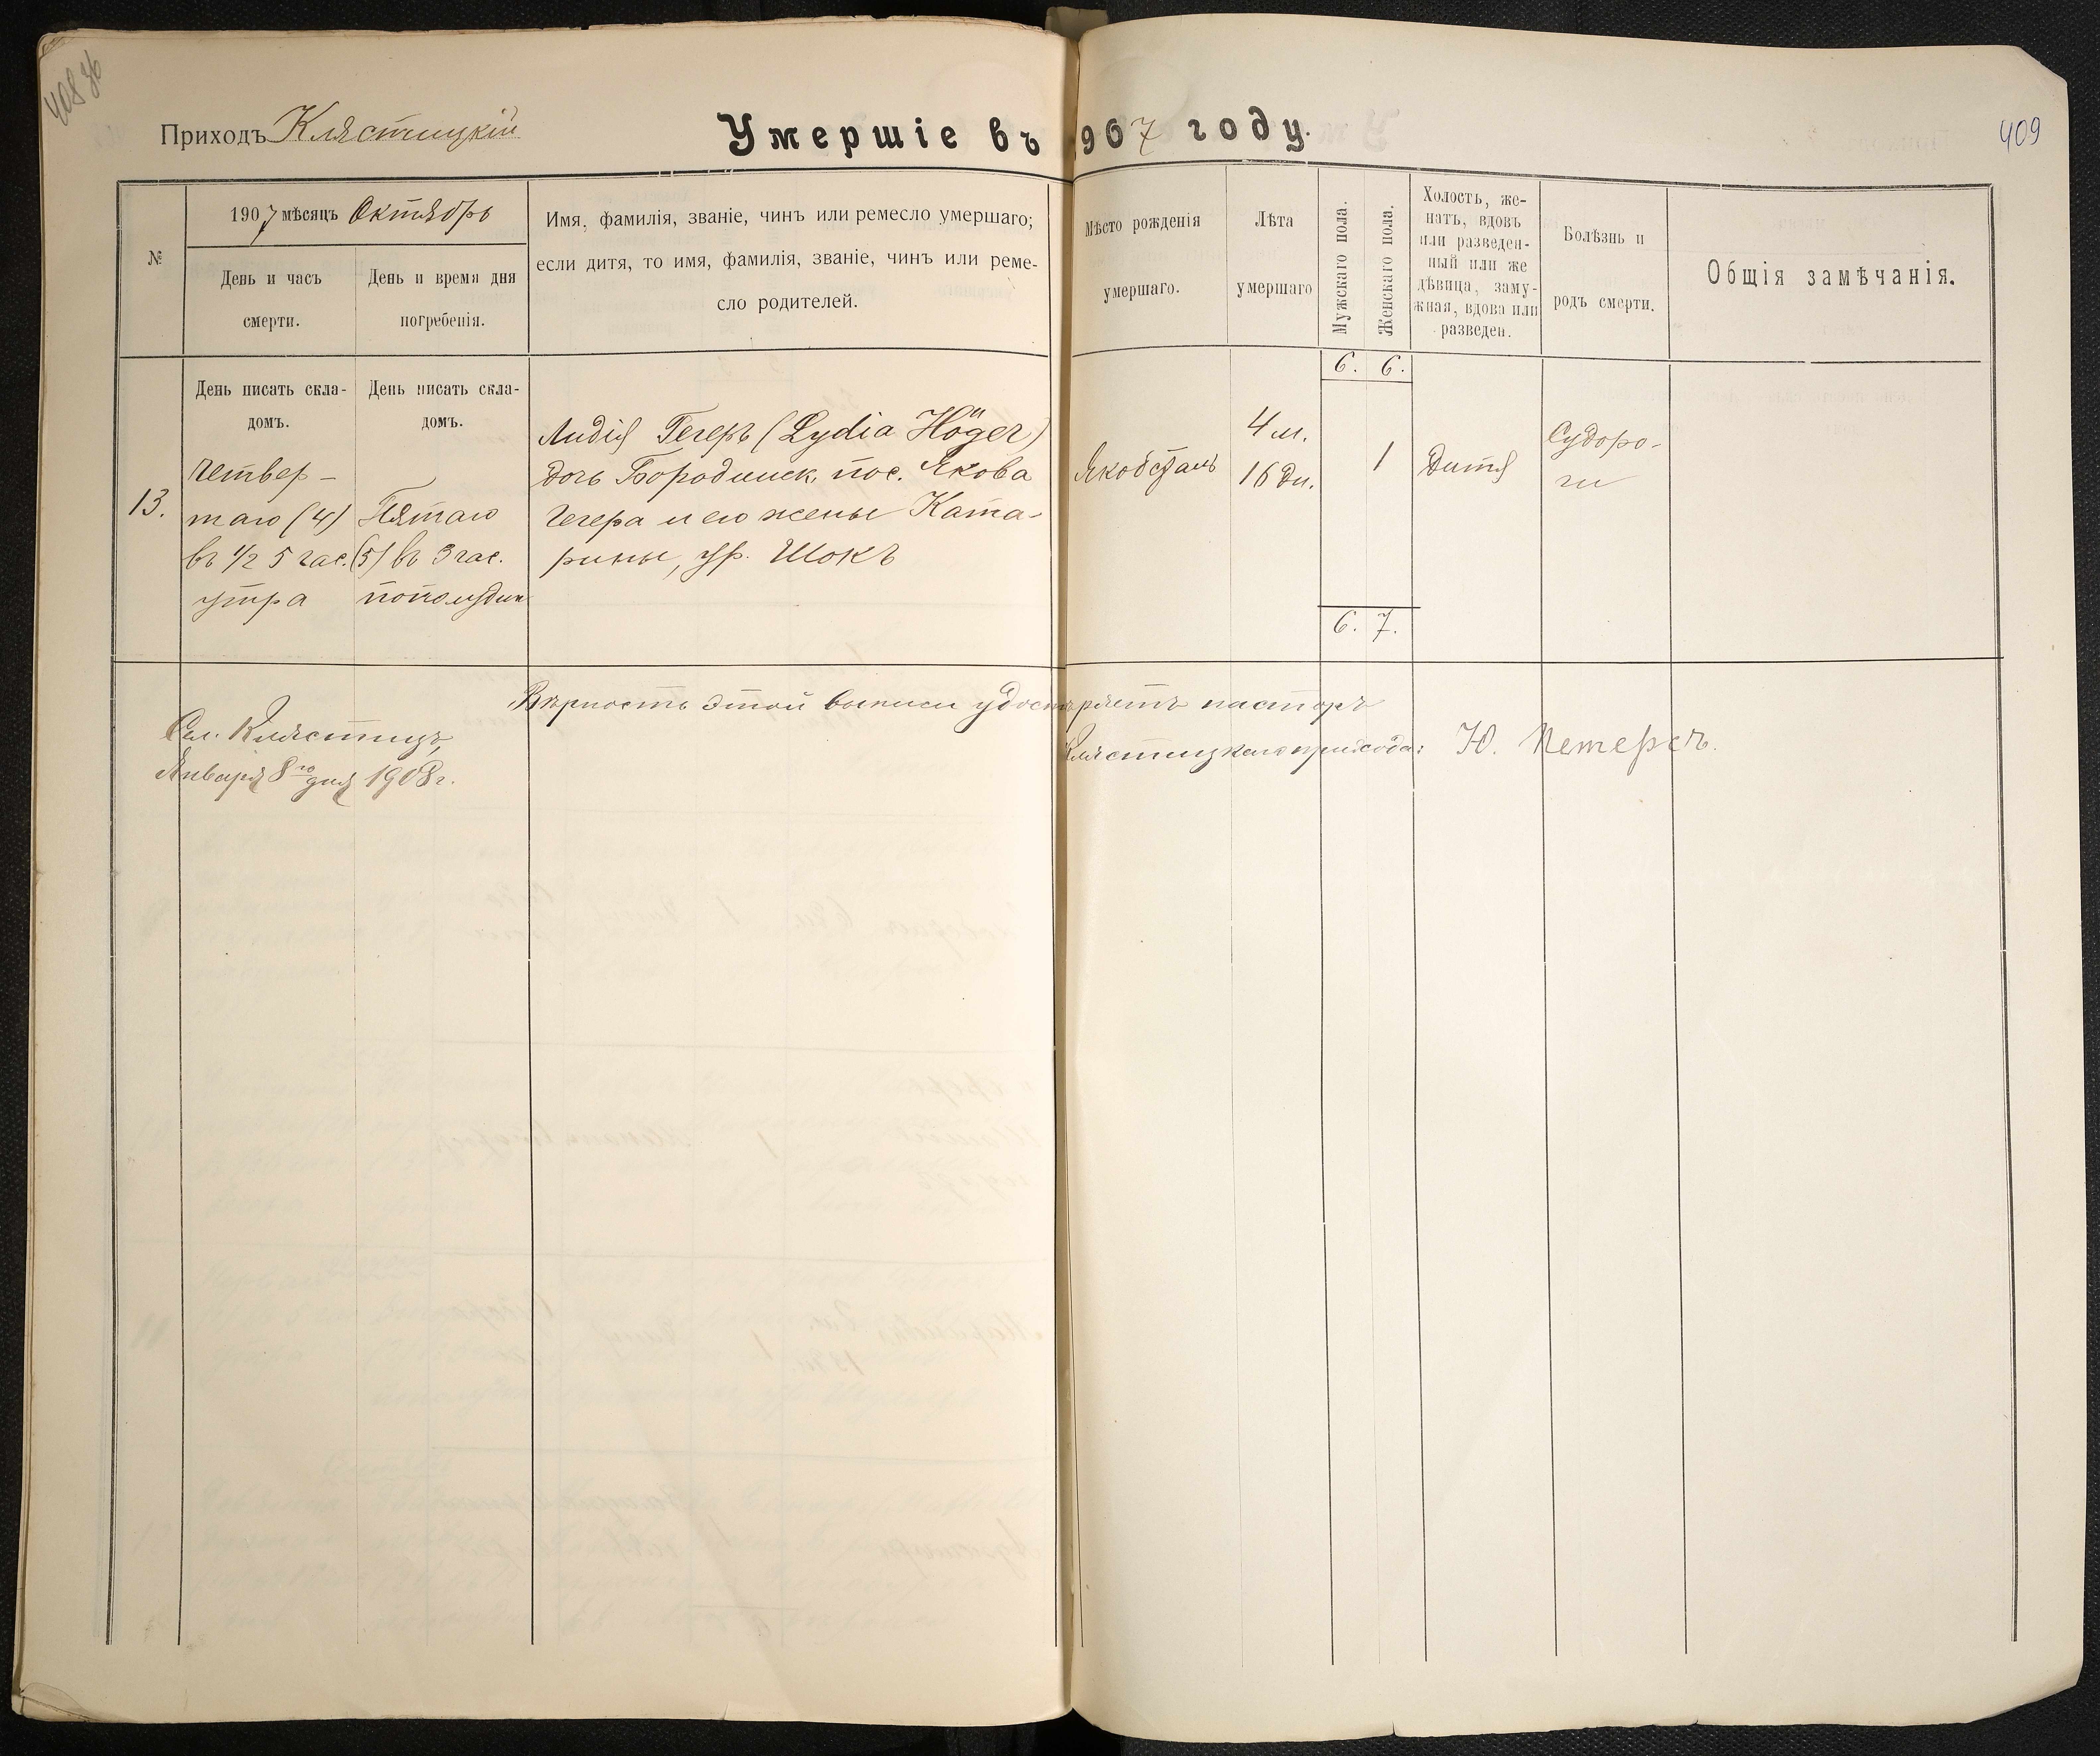 408 36
Приходъ Клястицкій
Умершіе въ 1907 году.
409
№
1907 мѣсяцъ Октябрь
День и часъ
смерти.
День и время дня
погребенія.
Имя, фамилія, званіе, чинъ или ремесло умершаго;
если дитя, то имя, фамилія, званіе, чинъ или реме-
сло родителей.
Мѣсто рожденія
умершаго.
Лѣта
умершаго
Мужскаго пола.
Женскаго пола.
Холостъ, же-
натъ, вдовъ
или разведен-
ный или же
дѣвица, заму-
жная, вдова или
разведен.
Болѣзнь и
родъ смерти.
Общія замѣчанія.
День писать скла-
домъ.
День писать скла-
домъ.
6. 6.
13.
четвер-
таго (4)
въ 1/2 5 час.
утра
Пятаго
(5) въ 3 час.
пополудни
Лидія Гегеръ (Lydia Höger)
дочь Бородинск. пос. Якова
Гегера и его жены Ката-
рины, ур. Шокъ
Якобсталь
4 м.
16 дн.
1
Дитя
Судоро-
ги
6. 7.
Вѣрность этой выписи удостовѣряетъ пасторъ
Клястицкаго прихода: Ю. Петерсъ.
Сел. Клястицъ,
Января 8го дня 1908 г.